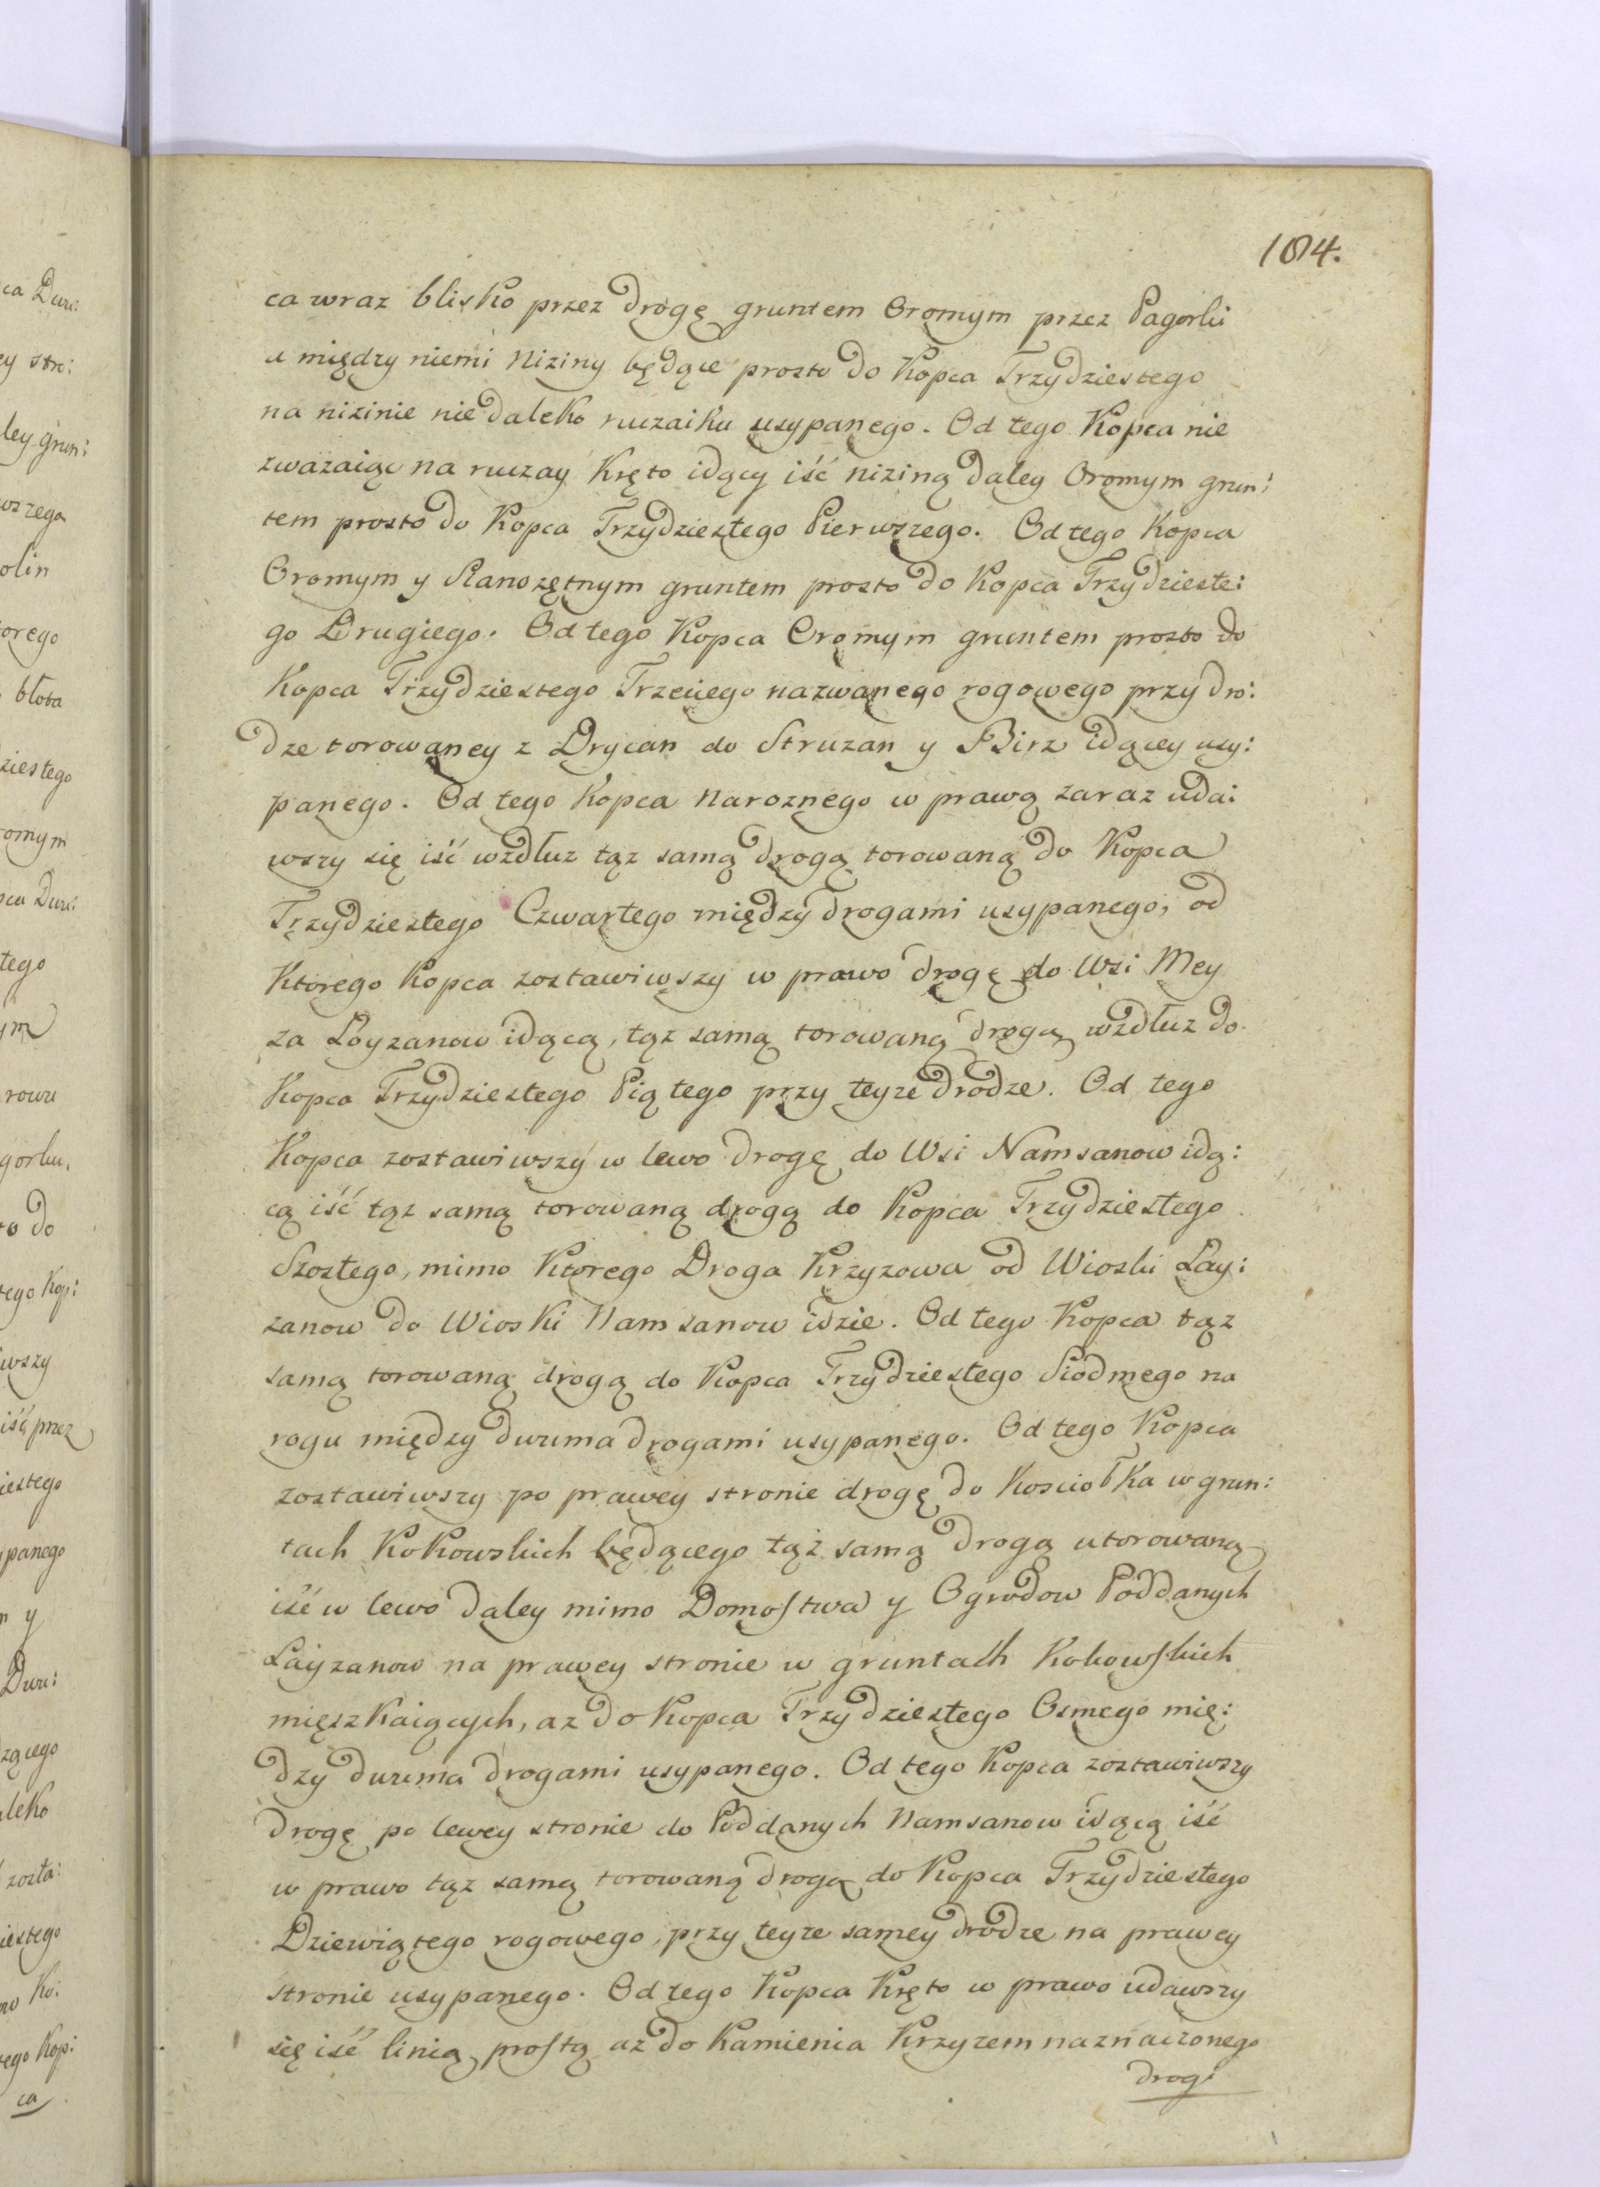 184.
ca wraz blisko przez drogę gruntem Oromym przez Pagorki
a między niemi Niziny będące prosto do Kopca Trzydziestego
na nizinie niedaleko ruczaiku usypanego. Od tego Kopca nie
zwazaiąc na ruczay Kręto idący iść niziną daley Oromym grun:
tem prosto do Kopca Trzydziestego Pierwszego. Od tego Kopca
Oromym y Sianożętnym gruntem prosto do Kopca Trzydzieste:
go Drugiego. Od tego Kopca Oromym gruntem prosto do
Kopca Trzydziestego Trzeciego nazwanego rogowego przy dro:
dze torowaney z Drycan do Struzan y Birz idącey usy:
panego. Od tego Kopca Naroznego w prawą zaraz uda:
wszy się iść wzdłuz tąz samą drogą torowaną do Kopca
Trzydziestego Czwartego między drogami usypanego, od
Ktorego Kopca zostawiwszy w prawo drogę do Wsi Mey
za Loyzanow idącą, tąz samą torowaną drogą wzdłuz do
Kopca Trzydziestego Piątego przy teyze drodze. Od tego
Kopca zostawiwszy w lewo drogę do Wsi Namsanow idą:
cą iść tąz samą torowaną drogą do Kopca Trzydziestego
Szostego, mimo Ktorego Droga Krzyzowa od Wioski Lay:
zanow do Wioski Namsanow idzie. Od tego Kopca tąz
samą torowaną drogą do Kopca Trzydziestego Siodmego na
rogu między dwuma drogami usypanego. Od tego Kopca
zostawiwszy po prawey stronie drogę do Kosciołka w grun:
tach Kokowskich będącego tąż samą drogą utorowaną
iść w lewo daley mimo Domostwa y Ogrodow Poddanych
Layzanow na prawey stronie w gruntach Kokowskich
mięszkaiących, az do Kopca Trzydziestego Osmego mię:
dzy dwuma drogami usypanego. Od tego Kopca zostawiwszy
drogę po lewey stronie do Poddanych Namsanow idącą iść
w prawo tąz samą torowaną drogą do Kopca Trzydziestego
Dziewiątego rogowego, przy teyze samey drodze na prawey
stronie usypanego. Od tego Kopca Kręto w prawo udawszy
się iść linią prostą az do Kamienia Krzyzem naznaczonego
drogi